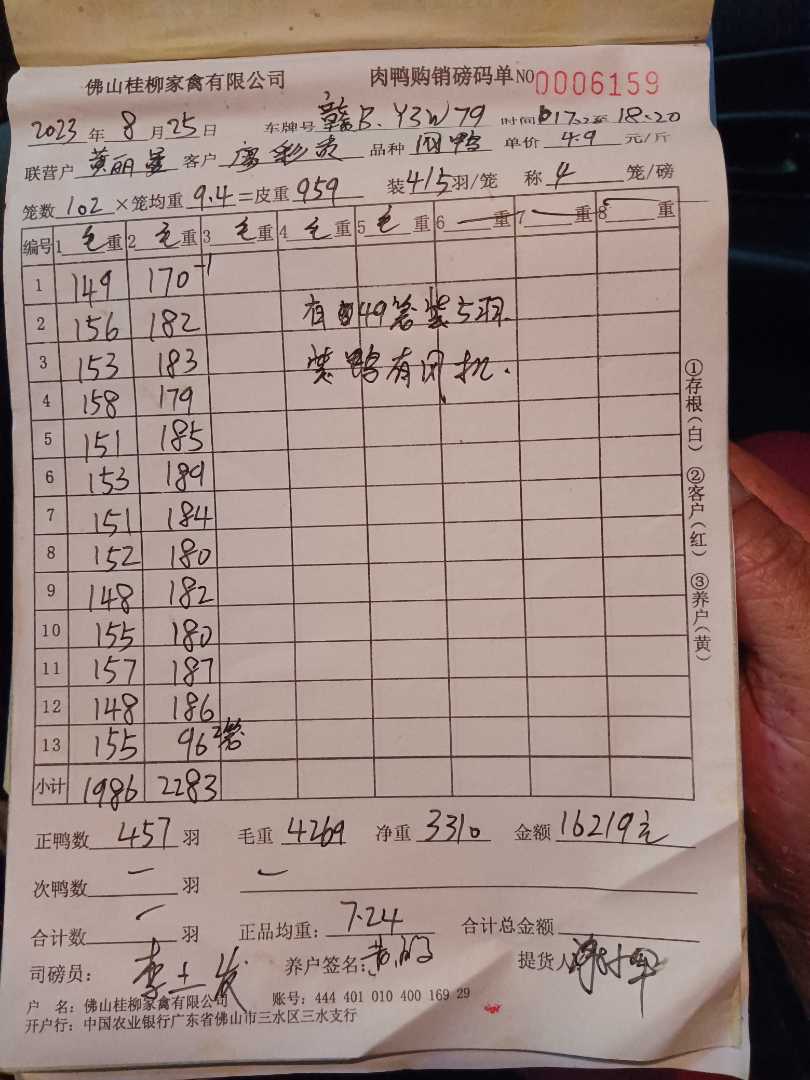 佛山桂柳家禽有限公司 肉鸭购销磅码单 NO 0006159
2023 年 8 月 25 日 车牌号 赣B·Y3W79 时间 至 18:20
联营户 黄丽 客户 廖彩贵 品种 肉鸭 单价 4.9 元/斤
笼数 102 ×笼均重 9.4 =皮重 959 装 4/5 羽/笼 称 4 笼/磅
编号 1 毛 重 2 毛 重 3 毛 重 4 毛 重 5 毛 重 6 重 7 重 8 重
1 149 170 -1
2 156 182 有 49笼装5羽.
3 153 183 装鸭有
4 158 179
5 151 185
6 153 189
7 151 184
8 152 180
9 148 182
10 155 180
11 157 187
12 148 186
13 155 96 2笼
小计 1986 2283
①存根(白) ②客户(红) ③养户(黄)
正鸭数 457 羽 毛重 4269 净重 3310 金额 16219元
次鸭数 一 羽 一
合计数 一 羽 正品均重: 7.24 合计总金额
司磅员: 李士发 养户签名: 黄 提货人
户 名: 佛山桂柳家禽有限公司 账号: 444 401 010 400 169 29
开户行: 中国农业银行广东省佛山市三水区三水支行